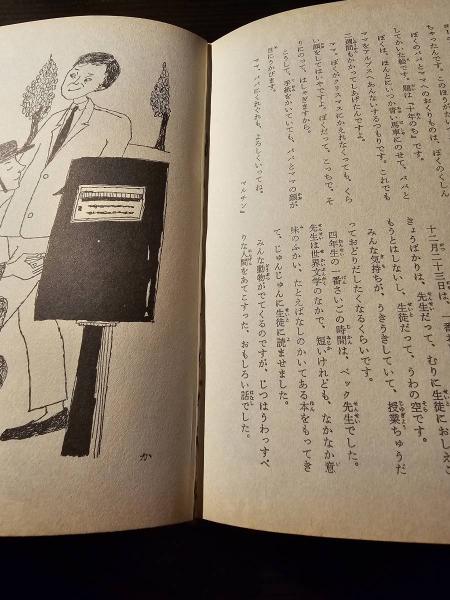 ちゃったんです。このほうが
ぼくのパパとママへのおくりものは、ぼくのくしん
してかいた絵です。題は『十年のち』です。
ぼくは、ほんとにいつか青い馬車にのせて、パパと
ママをアルプスへあんないするつもりです。これでも
二週間もかかってしあげたんですよ。
ママ、ぼくがクリスマスにかえれなくっても、くら
い顔をしてはいやですよ。ぼくだって、こっちで、そ
りにのって、はしゃぎますから。
こうして、手紙をかいていても、パパとママの顔が
目にうかびます。
ママ、パパにくれぐれも、よろしくいってね。
マルチン』
十二月二十三日は、一番
きょうばかりは、先生だって、むりに生徒におしえこ
もうとはしないし、生徒だって、うわの空です。
みんな気持ちが、うきうきしていて、授業ちゅうだ
っておどりだしたくなるくらいです。
四年生の一番さいごの時間は、ベック先生でした。
先生は世界文学のなかで、短いけれども、なかなか意
味のふかい、たとえばなしのかいてある本をもってき
て、じゅんじゅんに生徒に読ませました。
みんな動物がでてくるのですが、じつはうわっすべ
りな人間をあてこすった、おもしろい話でした。
か